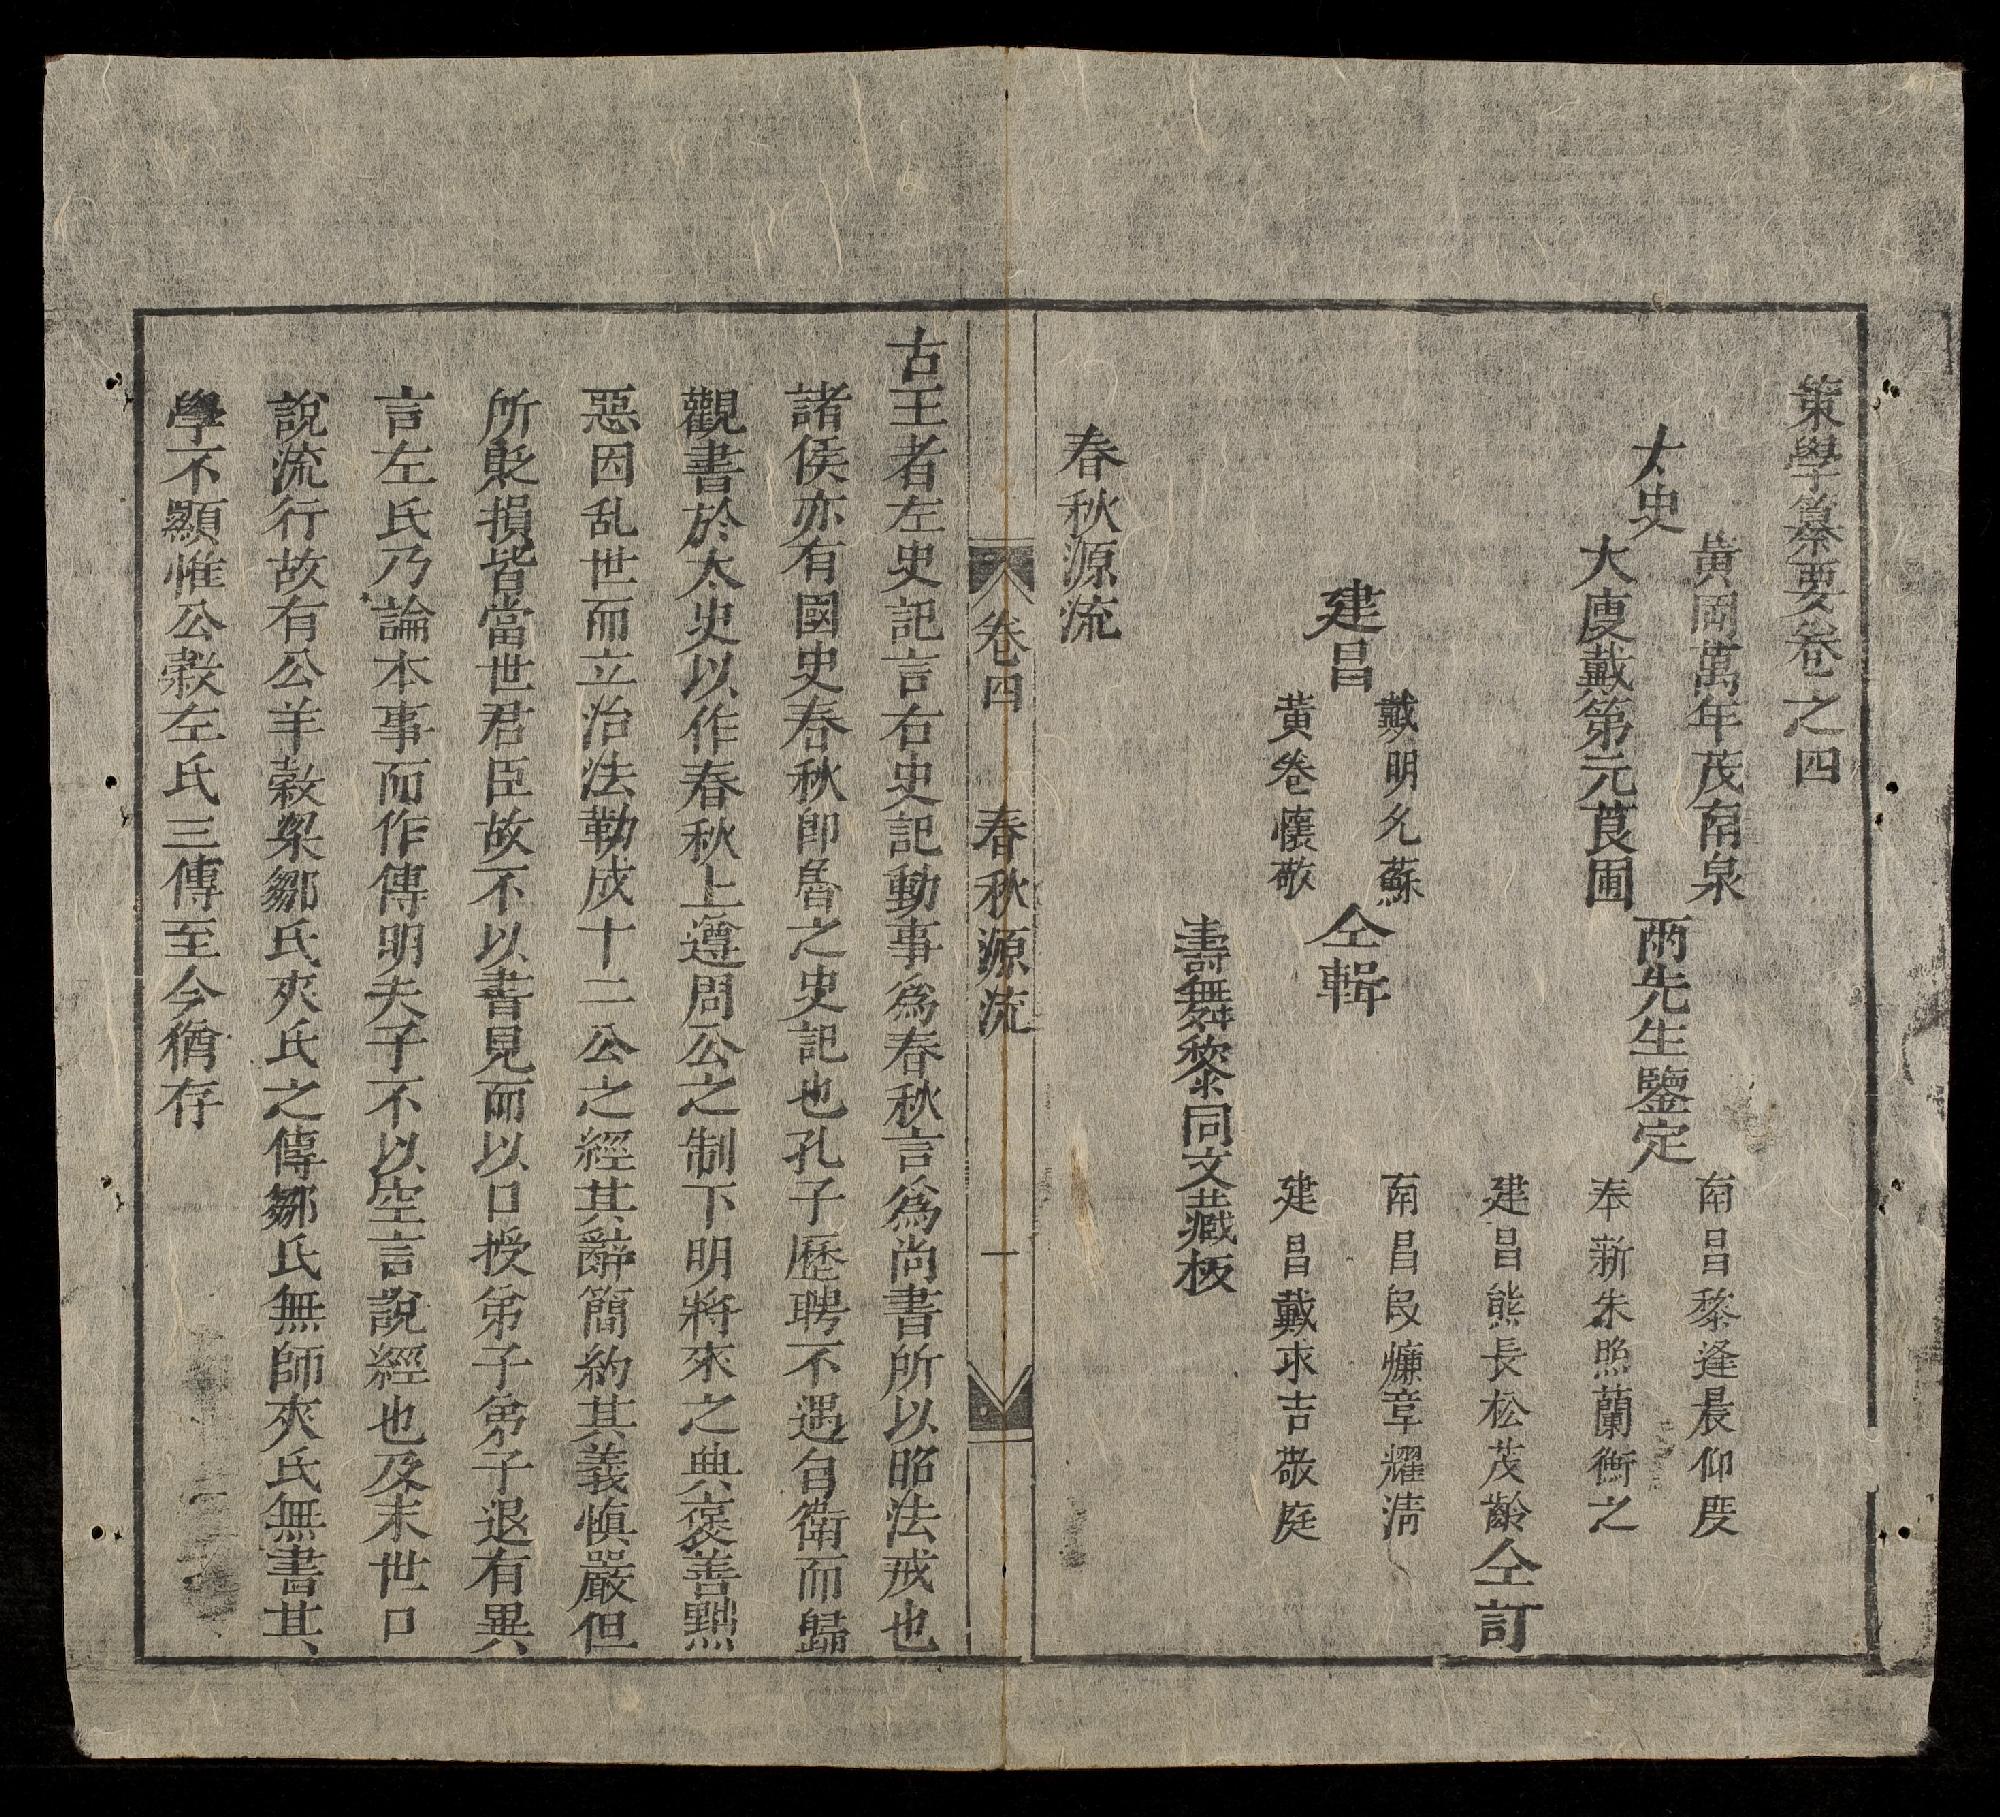 策學纂要卷之四
太史
黃岡萬年茂南泉
大庾戴第元莨圃
兩先生鑒定
南昌黎逢晨仰度
奉新朱照蘭衡之
建昌熊長松茂齡
南昌段㢘章耀淸
建昌戴求吉敬庭
仝訂
建昌
戴明允蘇
黃卷懷敬
仝輯
壽舞黎同文藏板
春秋源流
卷四 春秋源流 一
古王者左史記言右史記動事爲春秋言爲尚書所以昭法戒也
諸侯亦有國史春秋卽魯之史記也孔子歷聘不遇自衛而歸
觀書於太史以作春秋上遵周公之制下明將來之典褒善黜
惡因乱世而立治法勒成十二公之經其辭簡約其義慎嚴但
所貶損皆當世君臣故不以書見而以口授弟子弟子退有異
言左氏乃論本事而作傳明夫子不以空言說經也及末世口
說流行故有公羊穀梁鄒氏夾氏之傳鄒氏無師夾氏無書其
學不顯惟公穀左氏三傳至今猶存